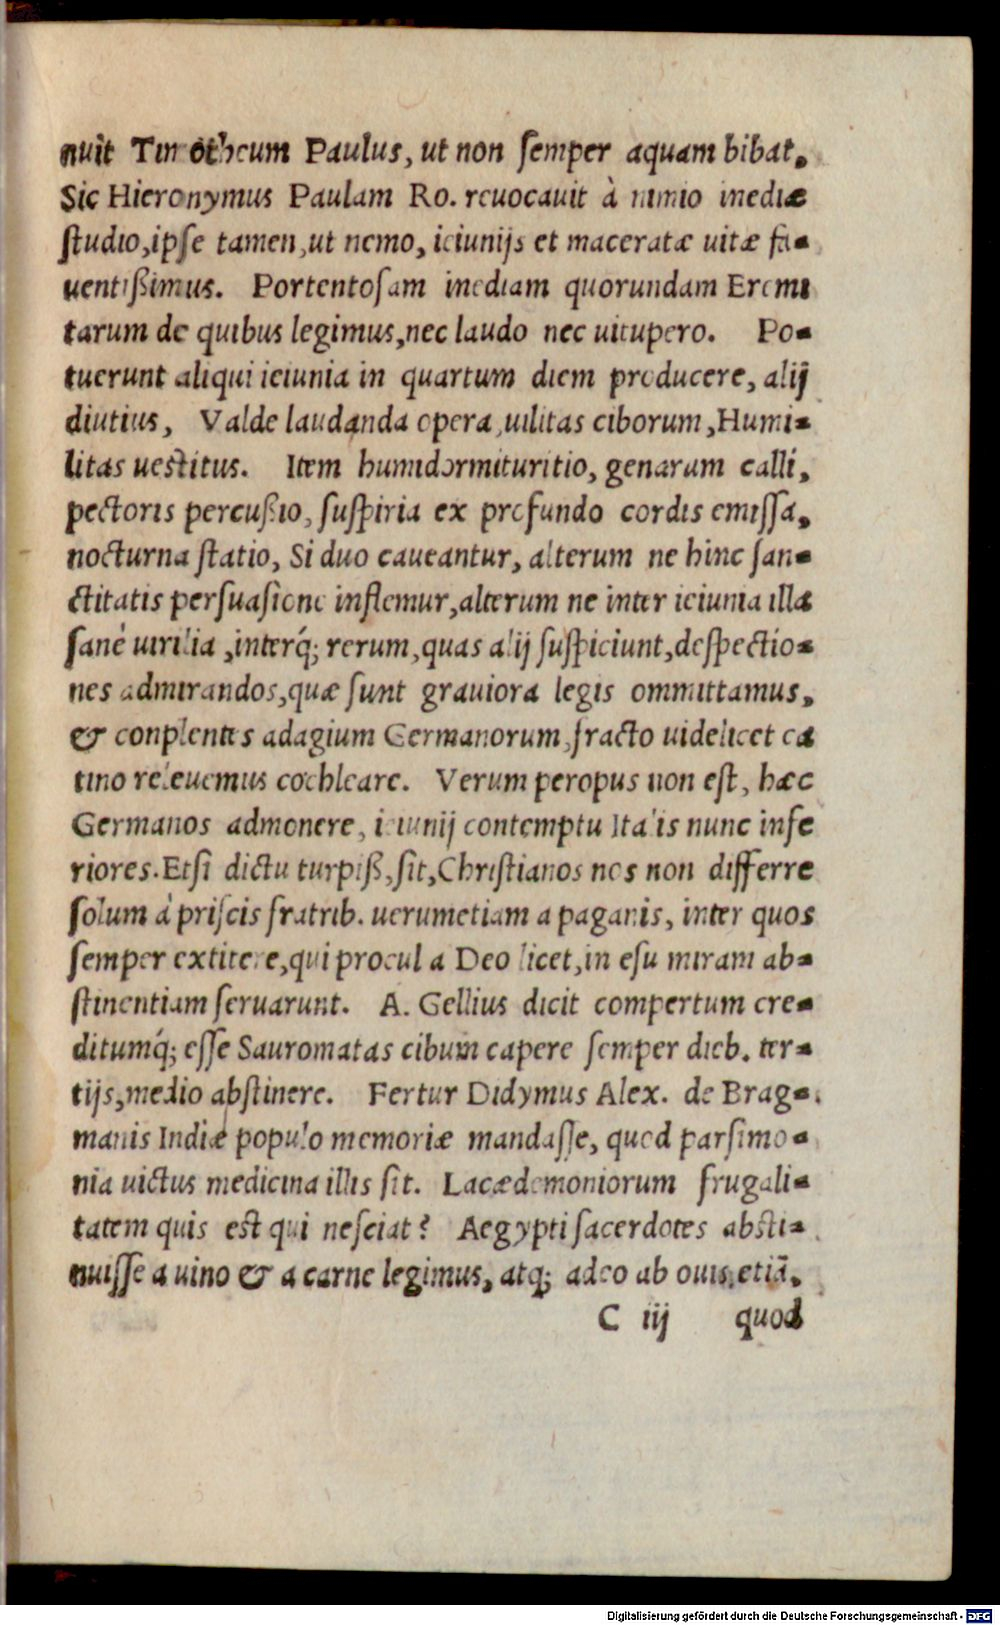 nuit Timotheum Paulus, ut non ſemper aquam bibat.
Sic Hieronymus Paulam Ro. reuocauit à nimio inediæ
ſtudio, ipſe tamen, ut nemo, ieiunijs et maceratæ uitæ fa-
uentiſsimus. Portentoſam inediam quorundam Eremi
tarum de quibus legimus, nec laudo nec uitupero. Po-
tuerunt aliqui ieiunia in quartum diem producere, alij
diutius, Valde laudanda opera, uilitas ciborum, Humi-
litas ueſtitus. Item humidormituritio, genarum calli,
pectoris percuſsio, ſuſpiria ex profundo cordis emiſſa,
nocturna ſtatio, Si duo caueantur, alterum ne hinc ſan-
ctitatis perſuaſione inflemur, alterum ne inter ieiunia illa
ſanè uirilia, interq́; rerum, quas alij ſuſpiciunt, deſpectio-
nes admirandos, quæ ſunt grauiora legis ommittamus,
& conplentes adagium Germanorum, fracto uidelicet ca
tino releuemus cochleare. Verum peropus non eſt, hæc
Germanos admonere, ieiunij contemptu Italis nunc infe
riores. Etſi dictu turpiſs, ſit, Chriſtianos nos non differre
ſolum à priſcis fratrib. uerumetiam a paganis, inter quos
ſemper extitere, qui procul a Deo licet, in eſu miram ab-
ſtinentiam ſeruarunt. A. Gellius dicit compertum cre-
ditumq́; eſſe Sauromatas cibum capere ſemper dieb. ter-
tijs, medio abſtinere. Fertur Didymus Alex. de Brag-
manis Indiæ populo memoriæ mandaſſe, quod parſimo-
nia uictus medicina illis ſit. Lacædemoniorum frugali-
tatem quis eſt qui neſciat? Aegypti ſacerdotes abſti-
nuiſſe a uino & a carne legimus, atq; adeo ab ouis etiā,
C iij quod
Digitalisierung gefördert durch die Deutsche Forschungsgemeinschaft - DFG